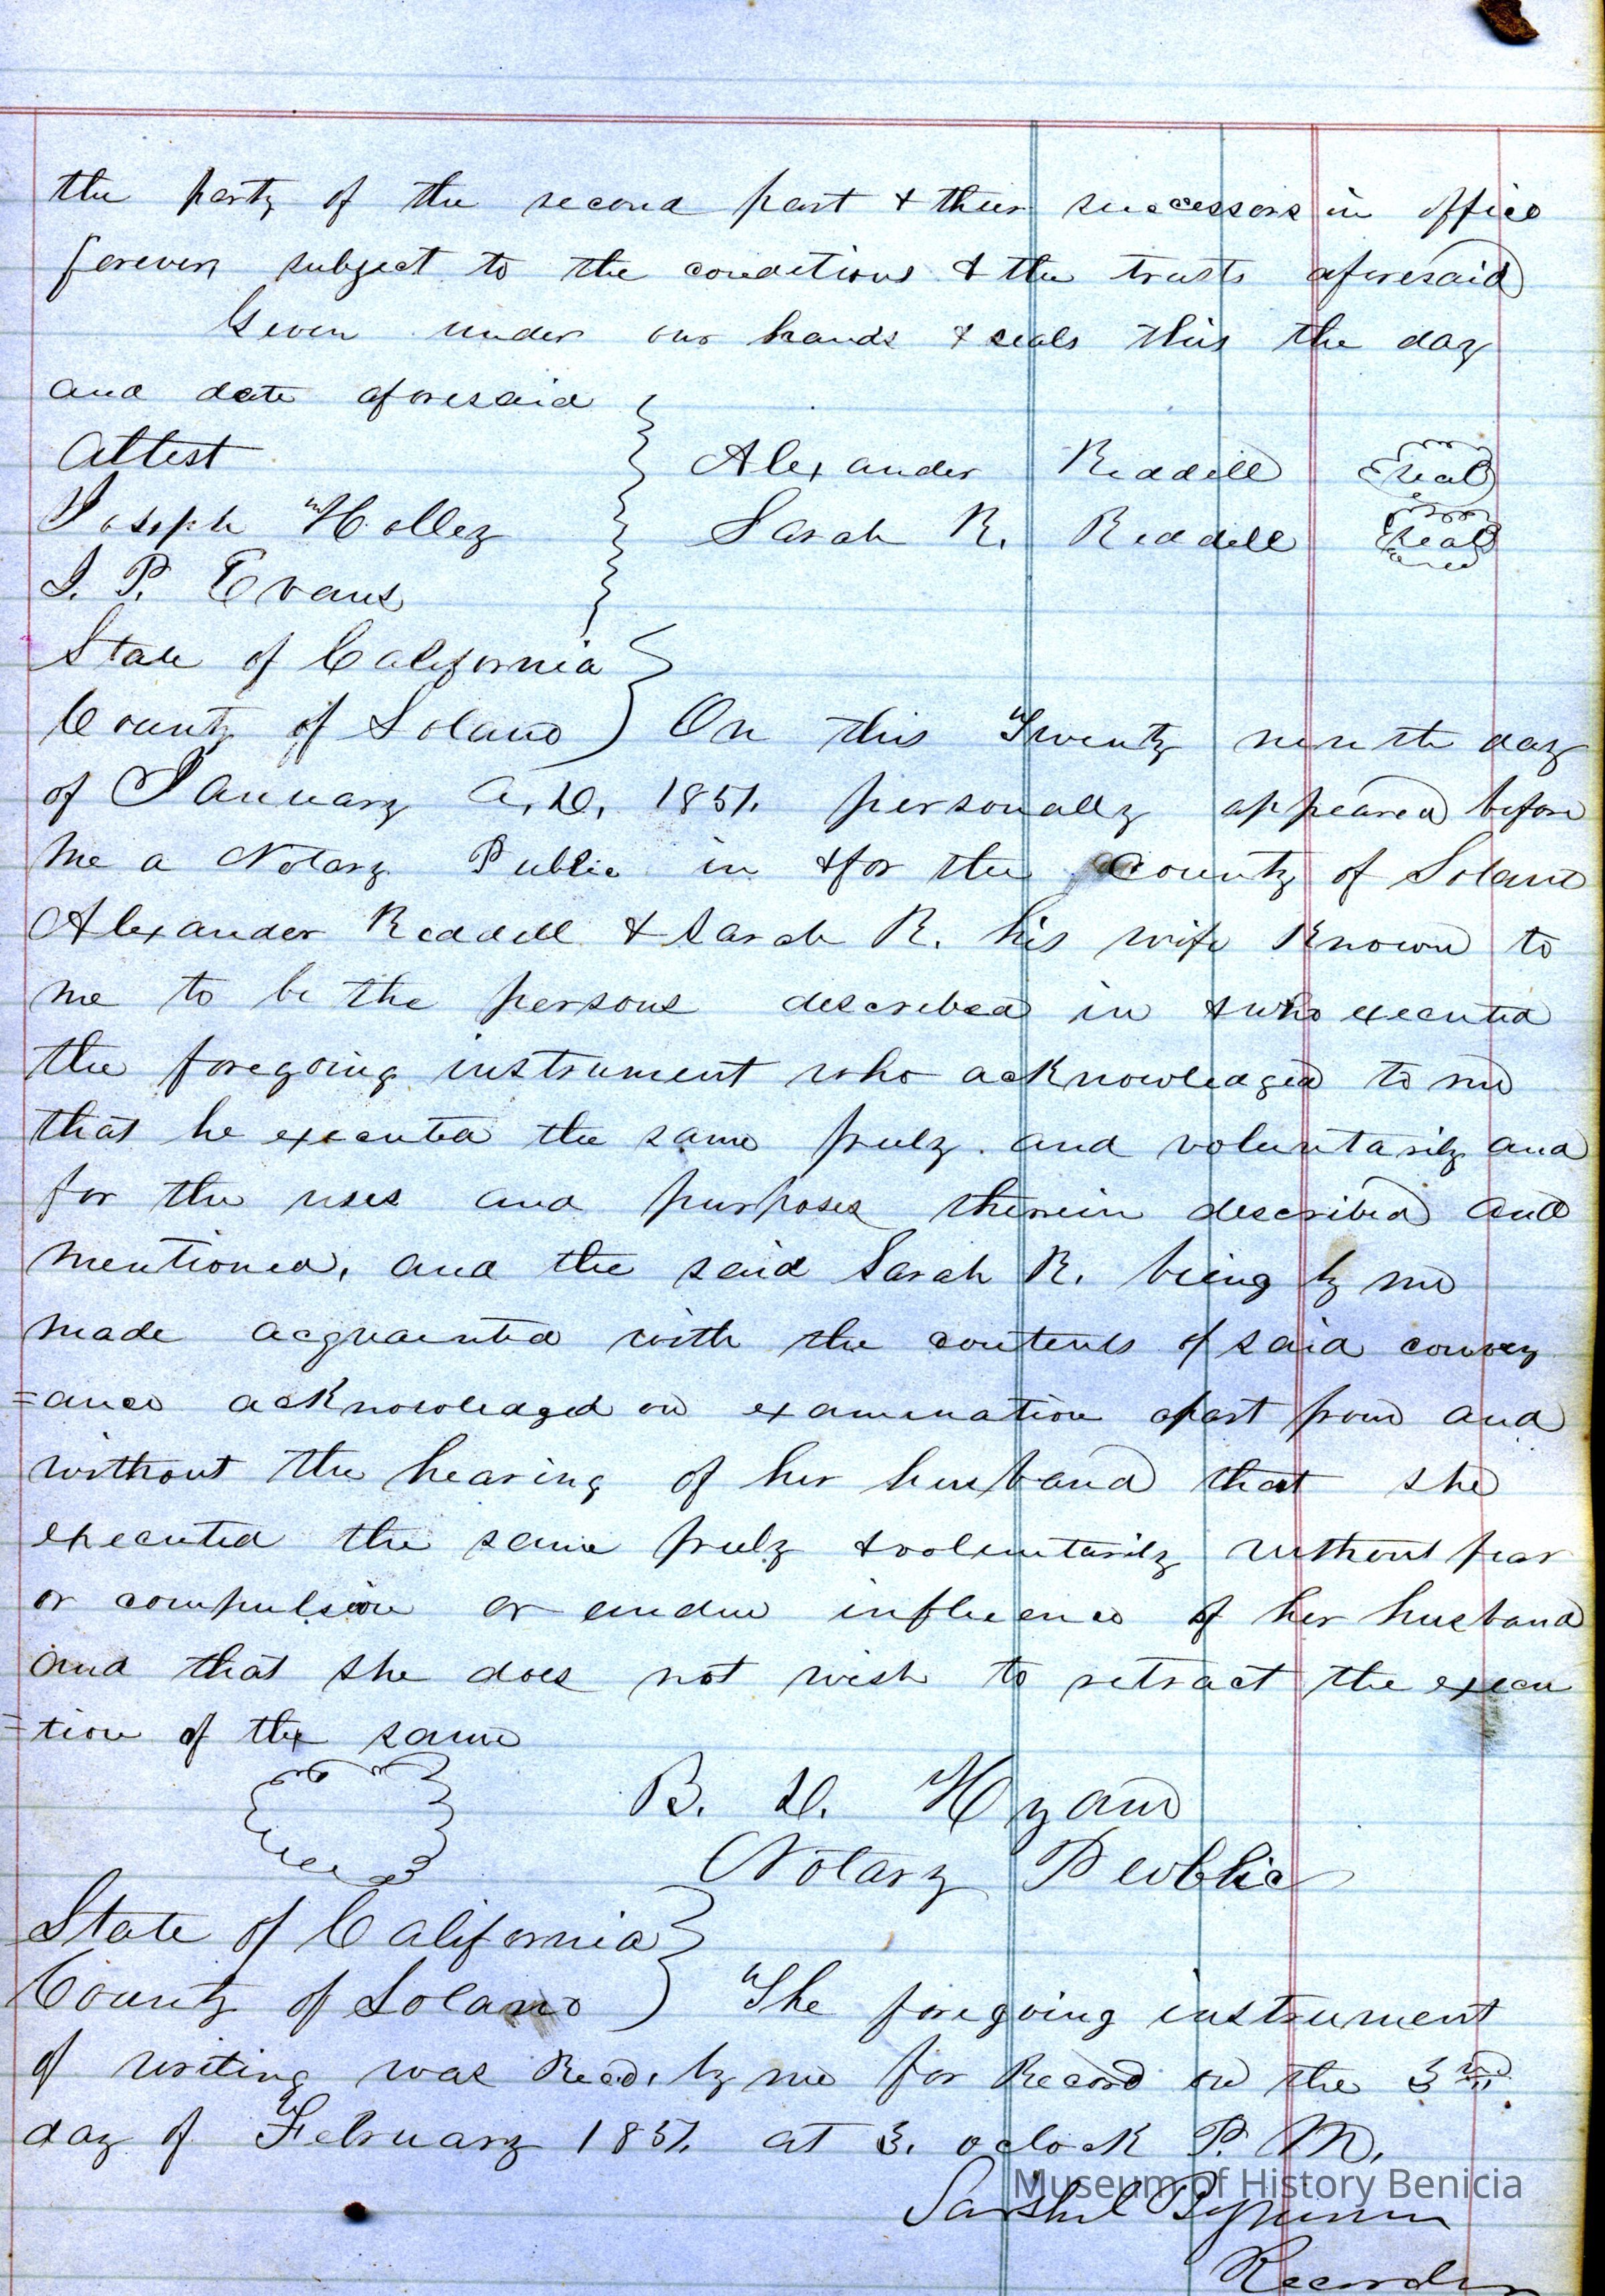 the party of the second part & their successors in office
forever subject to the conditions & the trusts aforesaid
Given under our hands & seals this the day
and date aforesaid
Attest
Alexander Riddell Seal
Joseph Holley
Sarah R. Riddell Seal
I. P. Evans
State of California
County of Solano On this Twenty ninth day
of January A.D. 1851. personally appeared before
me a Notary Public in & for the County of Solano
Alexander Riddell & Sarah R. his wife Known to
me to be the persons described in & who executed
the foregoing instrument who acknowledged to me
that he executed the same freely and voluntarily and
for the uses and purposes therein described and
mentioned, and the said Sarah R. being by me
made acquainted with the contents of said convey
=ance acknowledged on examination apart from and
without the hearing of her husband that she
executed the same freely & voluntarily without fear
or compulsion or undue influence of her husband
and that she does not wish to retract the execu
=tion of the same
B. D. Hyam
Notary Public
State of California
County of Solano The foregoing instrument
of writing was Recd. by me for Record on the 3rd
day of February 1851. at 3. oclock P. M.
Museum of History Benicia
Sarshel Bynum
Recorder